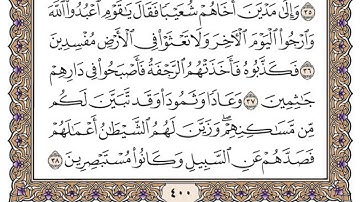 ٣٥ وَإِلَىٰ مَدْيَنَ أَخَاهُمْ شُعَيْبًا فَقَالَ يَٰقَوْمِ ٱعْبُدُوا۟ ٱللَّهَ
وَٱرْجُوا۟ ٱلْيَوْمَ ٱلْءَاخِرَ وَلَا تَعْثَوْا۟ فِى ٱلْأَرْضِ مُفْسِدِينَ
٣٦ فَكَذَّبُوهُ فَأَخَذَتْهُمُ ٱلرَّجْفَةُ فَأَصْبَحُوا۟ فِى دَارِهِمْ
جَٰثِمِينَ ٣٧ وَعَادًا وَثَمُودَا۟ وَقَد تَّبَيَّنَ لَكُم
مِّن مَّسَٰكِنِهِمْ ۖ وَزَيَّنَ لَهُمُ ٱلشَّيْطَٰنُ أَعْمَٰلَهُمْ
فَصَدَّهُمْ عَنِ ٱلسَّبِيلِ وَكَانُوا۟ مُسْتَبْصِرِينَ ٣٨
٤٠٠